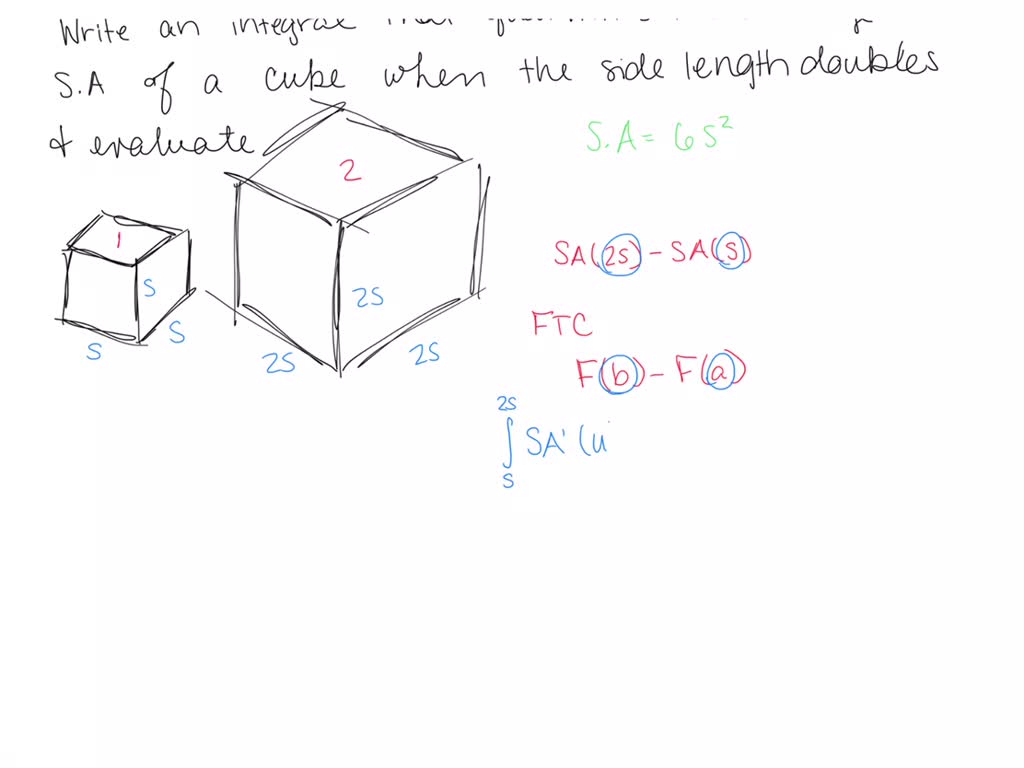 Write an integral that
S.A of a cube when the side length doubles
& evaluate
S.A = 6S²
2
1
SA(2S) - SA(S)
S
2S
FTC
S
S
2S
2S
F(b) - F(a)
2S
∫ SA' (u
S